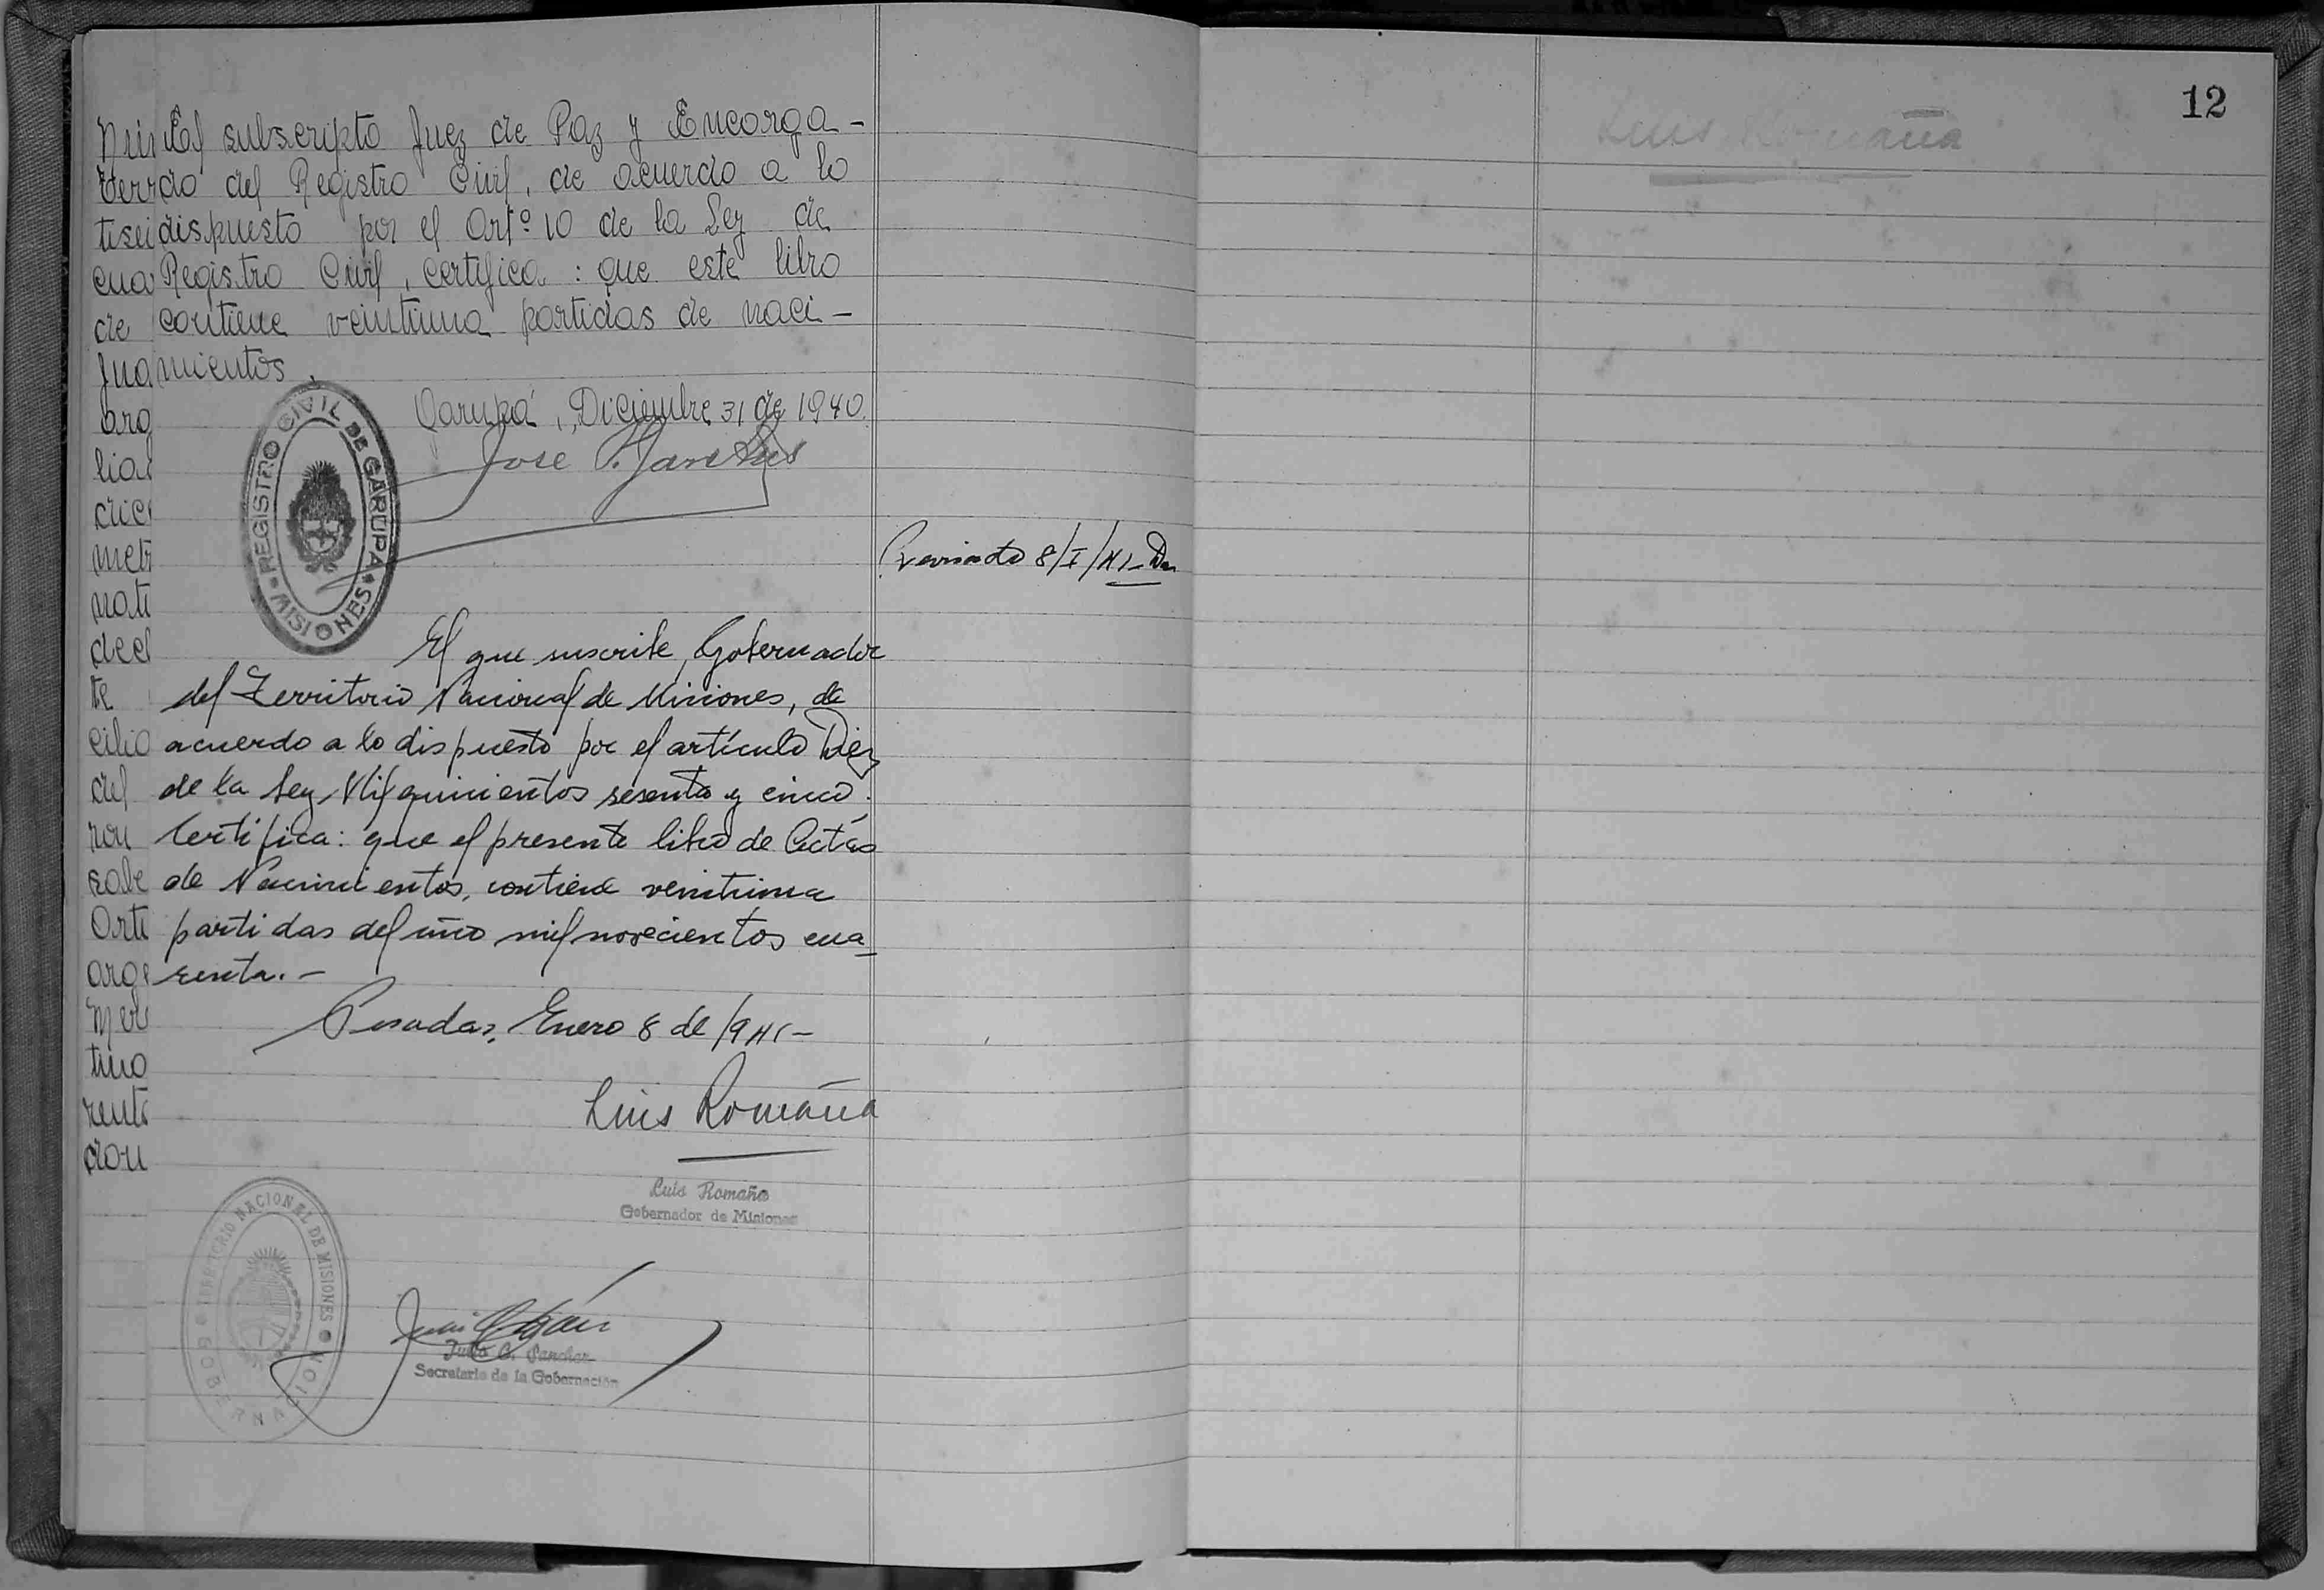 El subscripto Juez de Paz y Encarga-
do del Registro Civil, de acuerdo a lo
dispuesto por el Artº 10 de la Ley de
Registro Civil, certifica: que este libro
contiene veintiuna partidas de naci-
mientos.
Garupá, Diciembre 31 de 1940.
REGISTRO CIVIL DE GARUPA
MISIONES
Revisado 8/I/41-
El que suscribe, Gobernador
del Territorio Nacional de Misiones, de
acuerdo a lo dispuesto por el artículo Diez
de la Ley Mil quinientos sesenta y cinco.
Certifica: que el presente libro de Actas
de Nacimientos, contiene veintiuna
partidas del año mil novecientos cua-
renta.-
Posadas, Enero 8 de 1941-
Luis Romaña
Luis Romaña
Gobernador de Misiones
GOBERNACION
TERRITORIO NACIONAL DE MISIONES
Secretario de la Gobernación
nin
terr
tisei
cua
de
Jua
arg
lia
die
metr
nati
decl
te
cilio
del
ron
sabe
Orti
arge
Mer
tino
rent
don
12
Luis Romaña